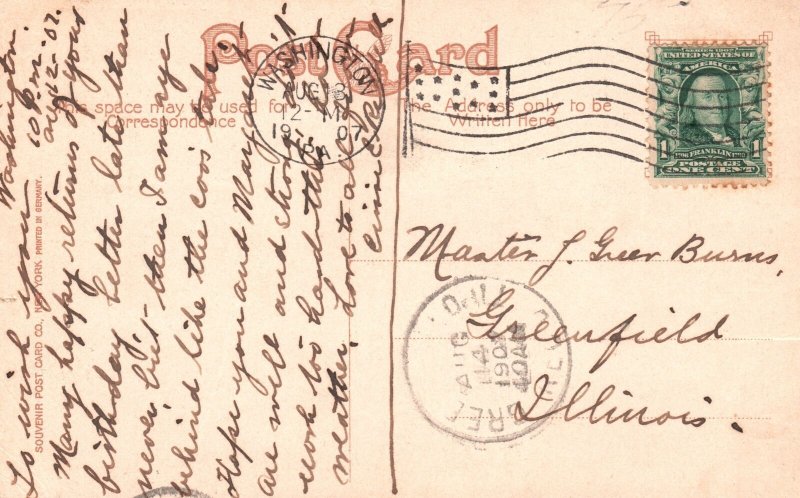 Post Card
This space may be used for
Correspondence
The Address only to be
Written Here
WASHINGTON
AUG 13
12-M
1907
PA.
SERIES 1902
UNITED STATES OF
AMERICA
1706 FRANKLIN 1790
POSTAGE
1 ONE CENT 1
Master J. Greer Burns,
Greenfield
Illinois.
AUG
14
190
10AM
ILL.
SOUVENIR POST CARD CO., NEW YORK PRINTED IN GERMANY.
Washington
Aug 12-07.
To wish you
Many happy returns of your
birthday better late than
never but then I am aye
behind like the coo's tail.
Hope you and Margaret
are well and strong & don't
work too hard this hot
weather. Love to all